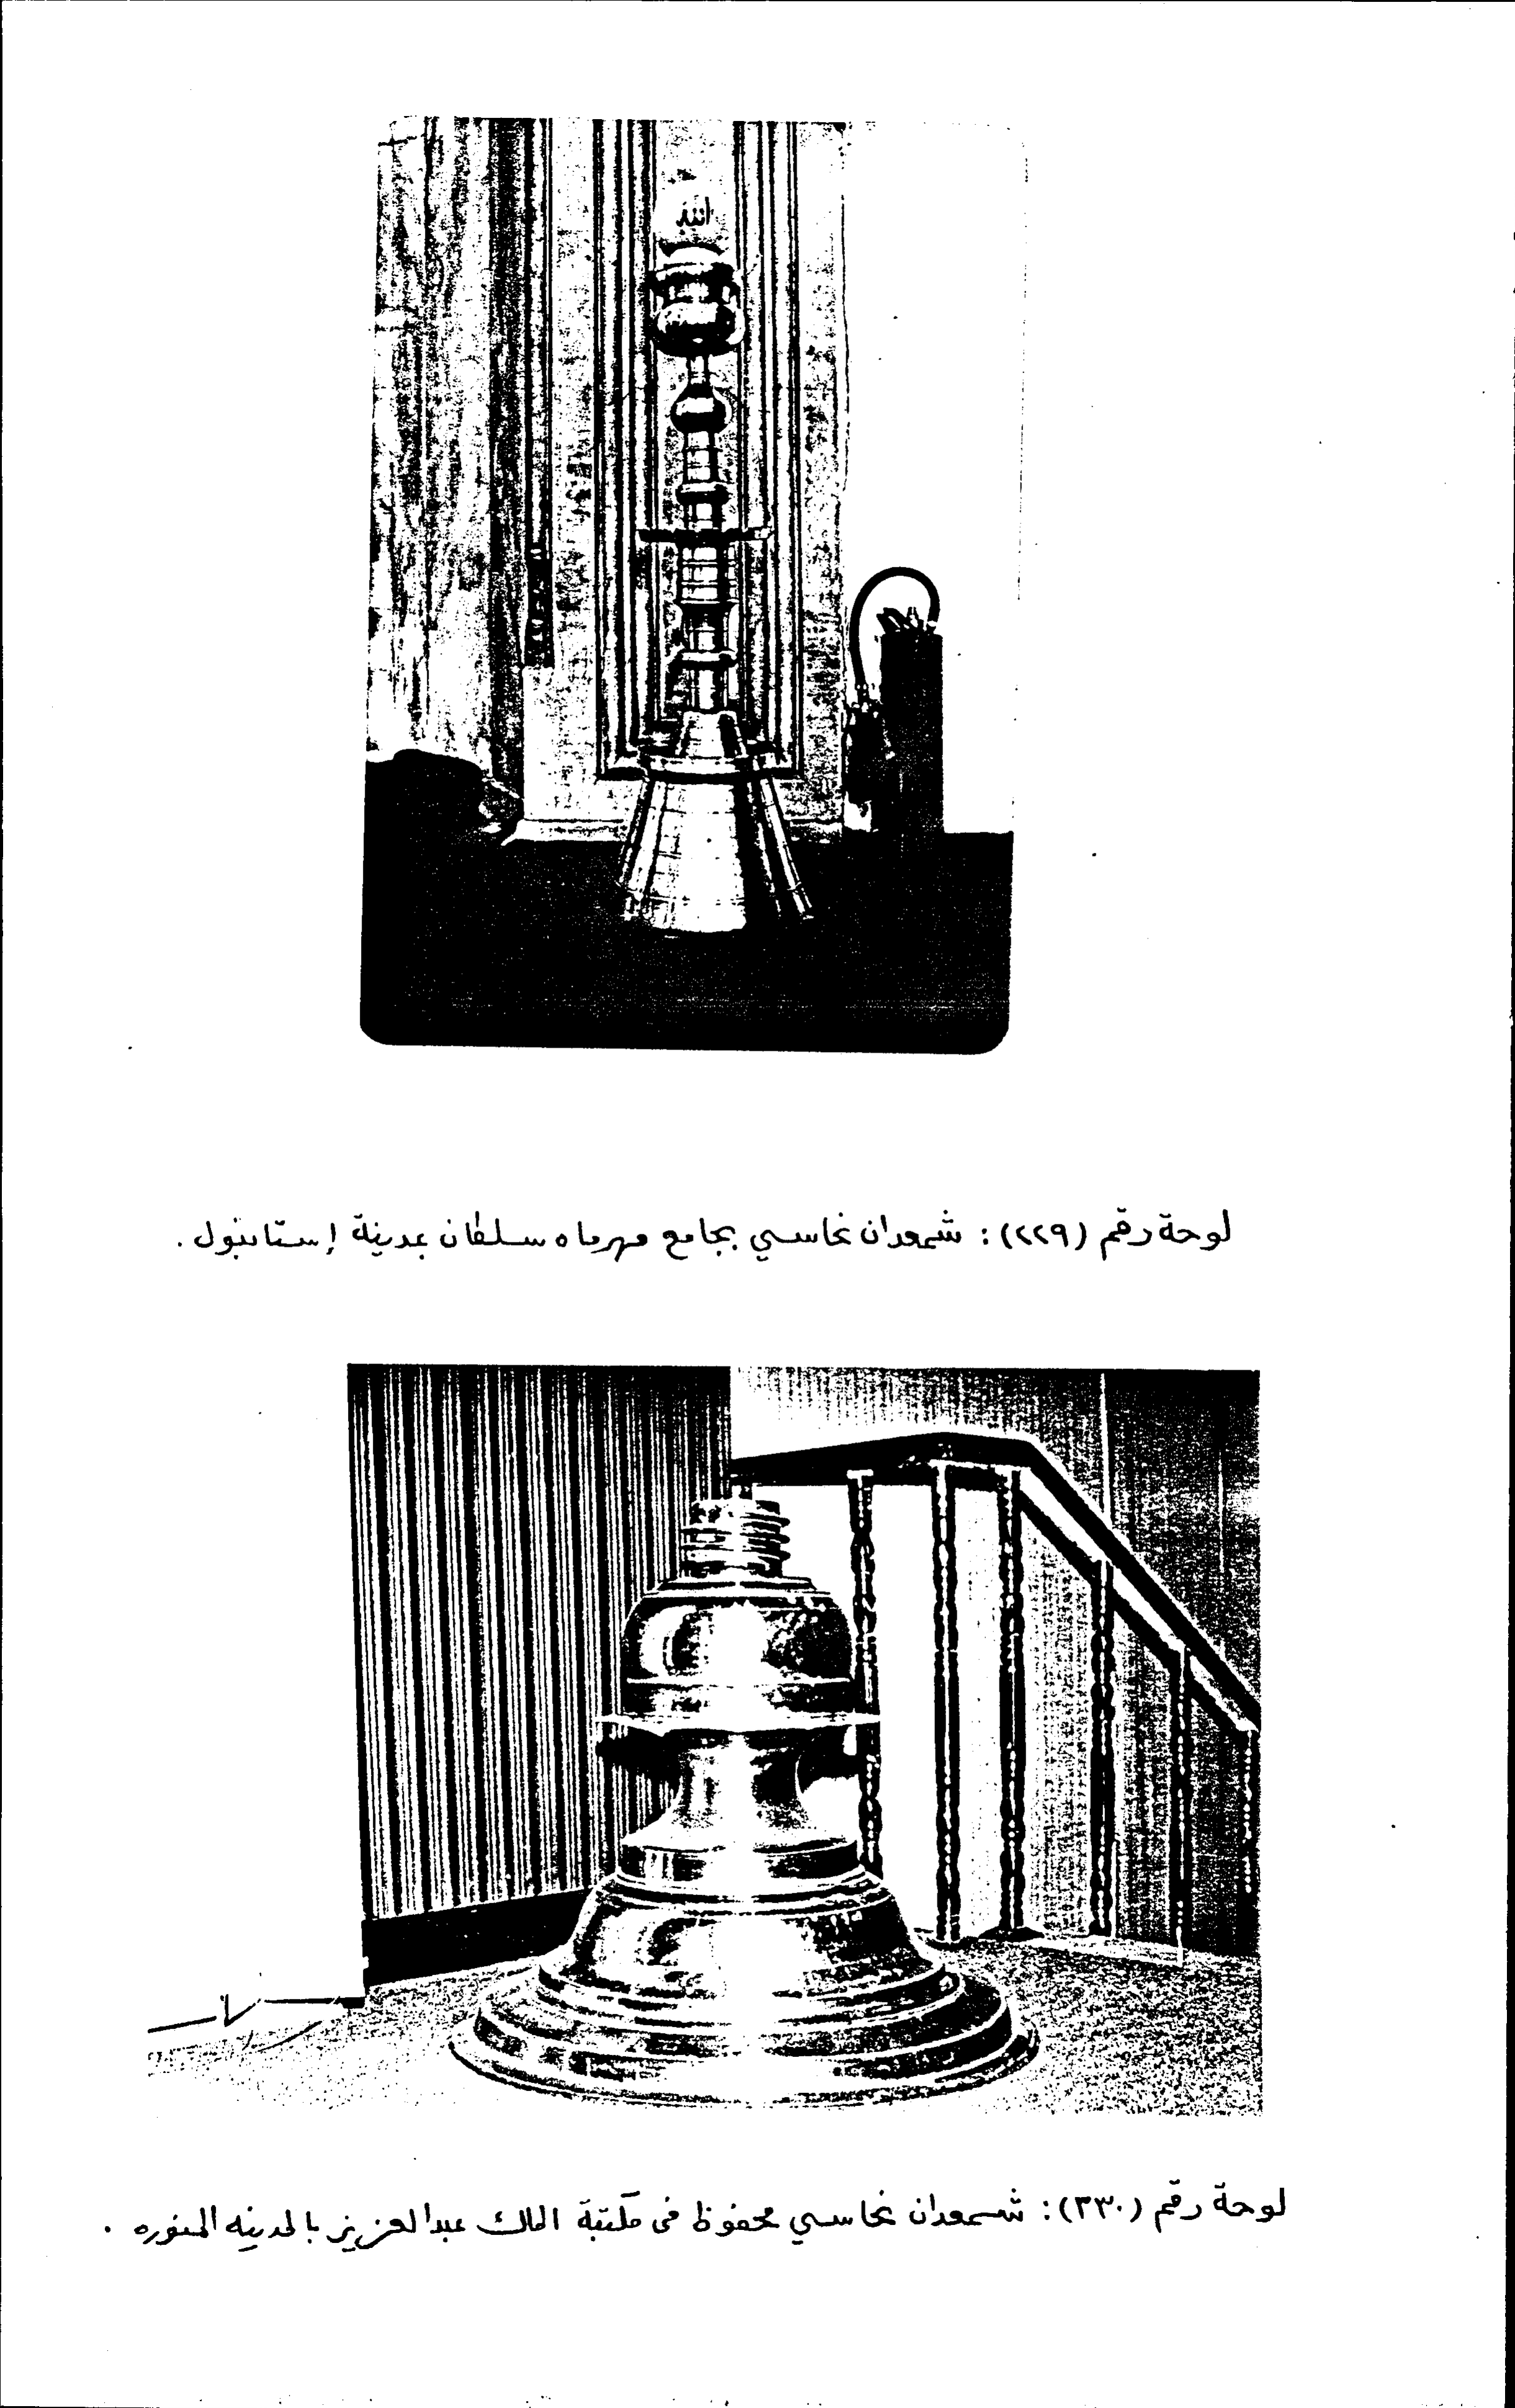 الله
لوحة رقم (٢٢٩) : شمعدان نحاسي بجامع مهرماه سلطان بمدينة إستانبول .
لوحة رقم (٣٣٠) : شمعدان نحاسي محفوظ فى مكتبة الملك عبد العزيز بالمدينه المنوره .